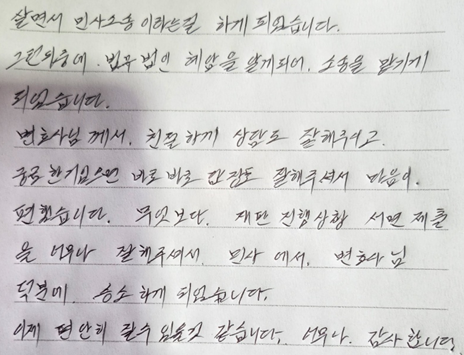 살면서 민사소송이라는걸 하게 되었습니다.
그런와중에. 법무법인 혜암을 알게되어. 소송을 맡기게
되었습니다.
변호사님께서. 친절하게 상담도 잘해주시고.
궁금한게있으면 바로바로 답장도 잘해주셔서 마음이.
편했습니다. 무엇보다. 재판 진행상황 서면 제출
을 너무나 잘해주셔서. 민사에서. 변호사님
덕분에. 승소하게 되었습니다.
이제 편안히 잘수 있을것 같습니다. 너무나. 감사합니다